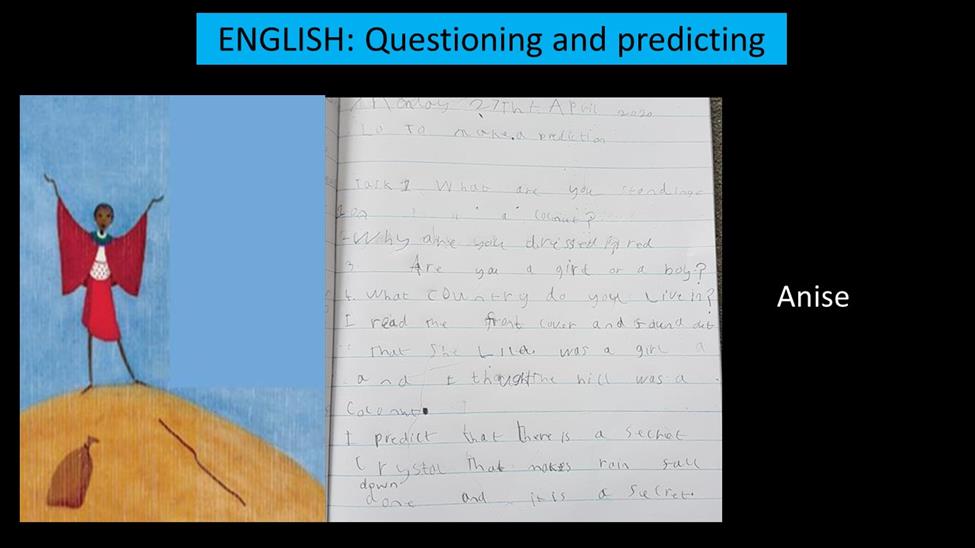 ENGLISH: Questioning and predicting
Monday 27Th April 2020
LO To make a prediction
Task 1 What are you standing
on a coconut?
Why are you dressed in red
3 Are you a girl or a boy?
4. What country do you Live in?
I read the front cover and found out
That She was a girl a
and I thought the hill was a
Coconut
I predict that there is a secret
Crystal That makes rain fall
down
done and it is a Secret.
Anise